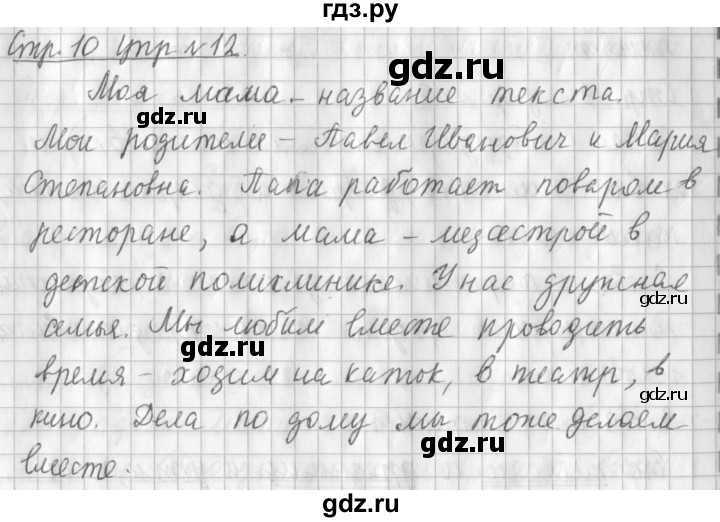 гдз.ру
Стр. 10 упр № 12.
Моя мама - название текста.
Мои родители - Павел Иванович и Мария
Степановна. Папа работает поваром в
ресторане, а мама - медсестрой в
детской поликлинике. У нас дружная
семья. Мы любим вместе проводить
время - ходим на каток, в театр, в
кино. Дела по дому мы тоже делаем
вместе.
gdz.ru
gdz.ru
gdz.ru
gdz.ru
gdz.ru
gdz.ru
gdz.ru
gdz.ru
gdz.ru